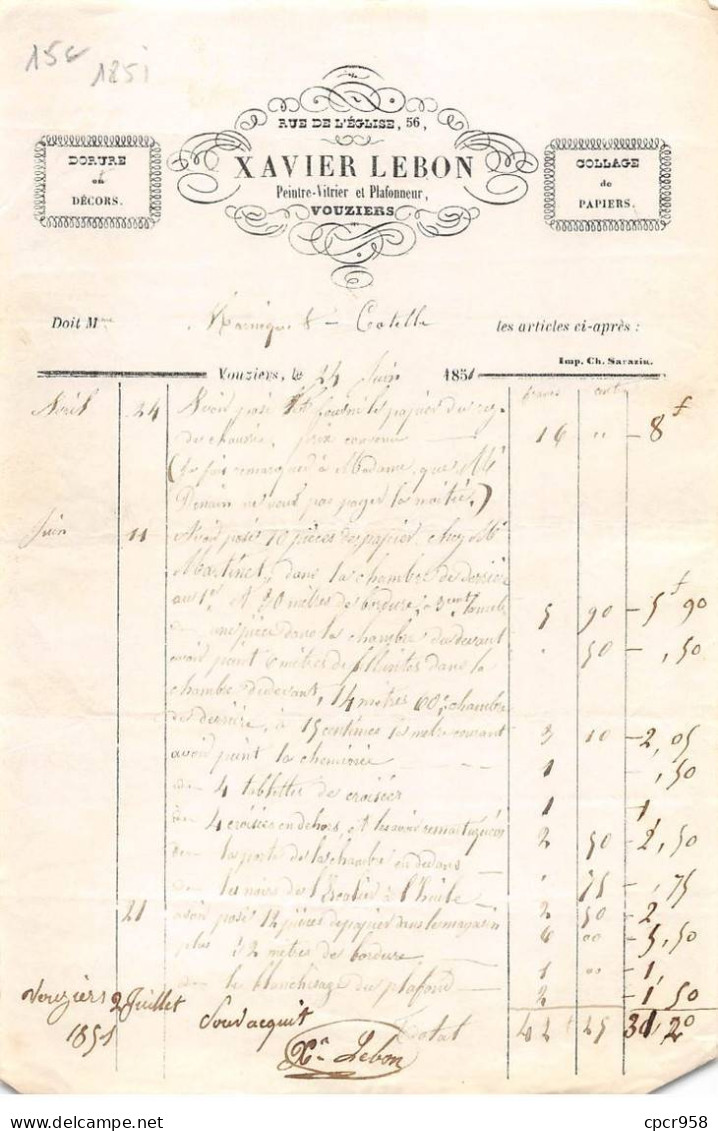 15€
1851
RUE DE L'ÉGLISE, 56,
XAVIER LEBON
Peintre-Vitrier et Plafonneur,
VOUZIERS
DORURE
et
DÉCORS.
COLLAGE
de
PAPIERS.
Doit M.me les articles ci-après :
Imp. Ch. Sarazin.
Vouziers, le 24 Juin 1851
francs cent
Avril 24 Avoir posé et fourni le papier du rez
de chaussée, prix convenu 16 " — 8 f
( fait remarquer à Madame que Mr
ne veut pas payer la moitié )
Juin 11 Avoir posé 10 pièces de papier chez Mr
Martinet, dans la chambre de derrière
au 1er et 30 mètres de bordure, à 3 cent le mètre 5 90 — 5 f 90
une pièce dans la chambre du devant " 50 — ,50
avoir peint 6 mètres de plinthes dans la
chambre de devant, 14 mètres 60 c chambre
de derrière, à 15 centimes le mètre courant 3 10 — 2,05
avoir peint la cheminée — 1 — ,50
4 tablettes de croisées 1 — 1
4 croisées en dehors, et les avoir 2 50 — 2,50
la porte de la chambre en dedans " 75 — ,75
les noirs de l'Escalier à l'huile 2 50 — 2
21 avoir posé 12 pièces de papier dans le magasin 6 00 — 5,50
plus 32 mètres de bordure 1 " — 1,
le blanchissage du plafond 2 — 1 50
Total 42 f 25
Vouziers 2 Juillet
1851
Pour acquit
Xer Lebon
cpcr958